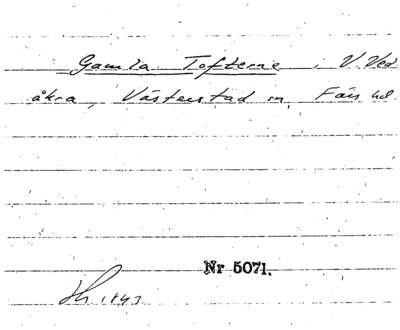 Gamla Tofterne, V. Ved
åkra, Västerstad sn, Färs hd.
Nr 5071.
1843